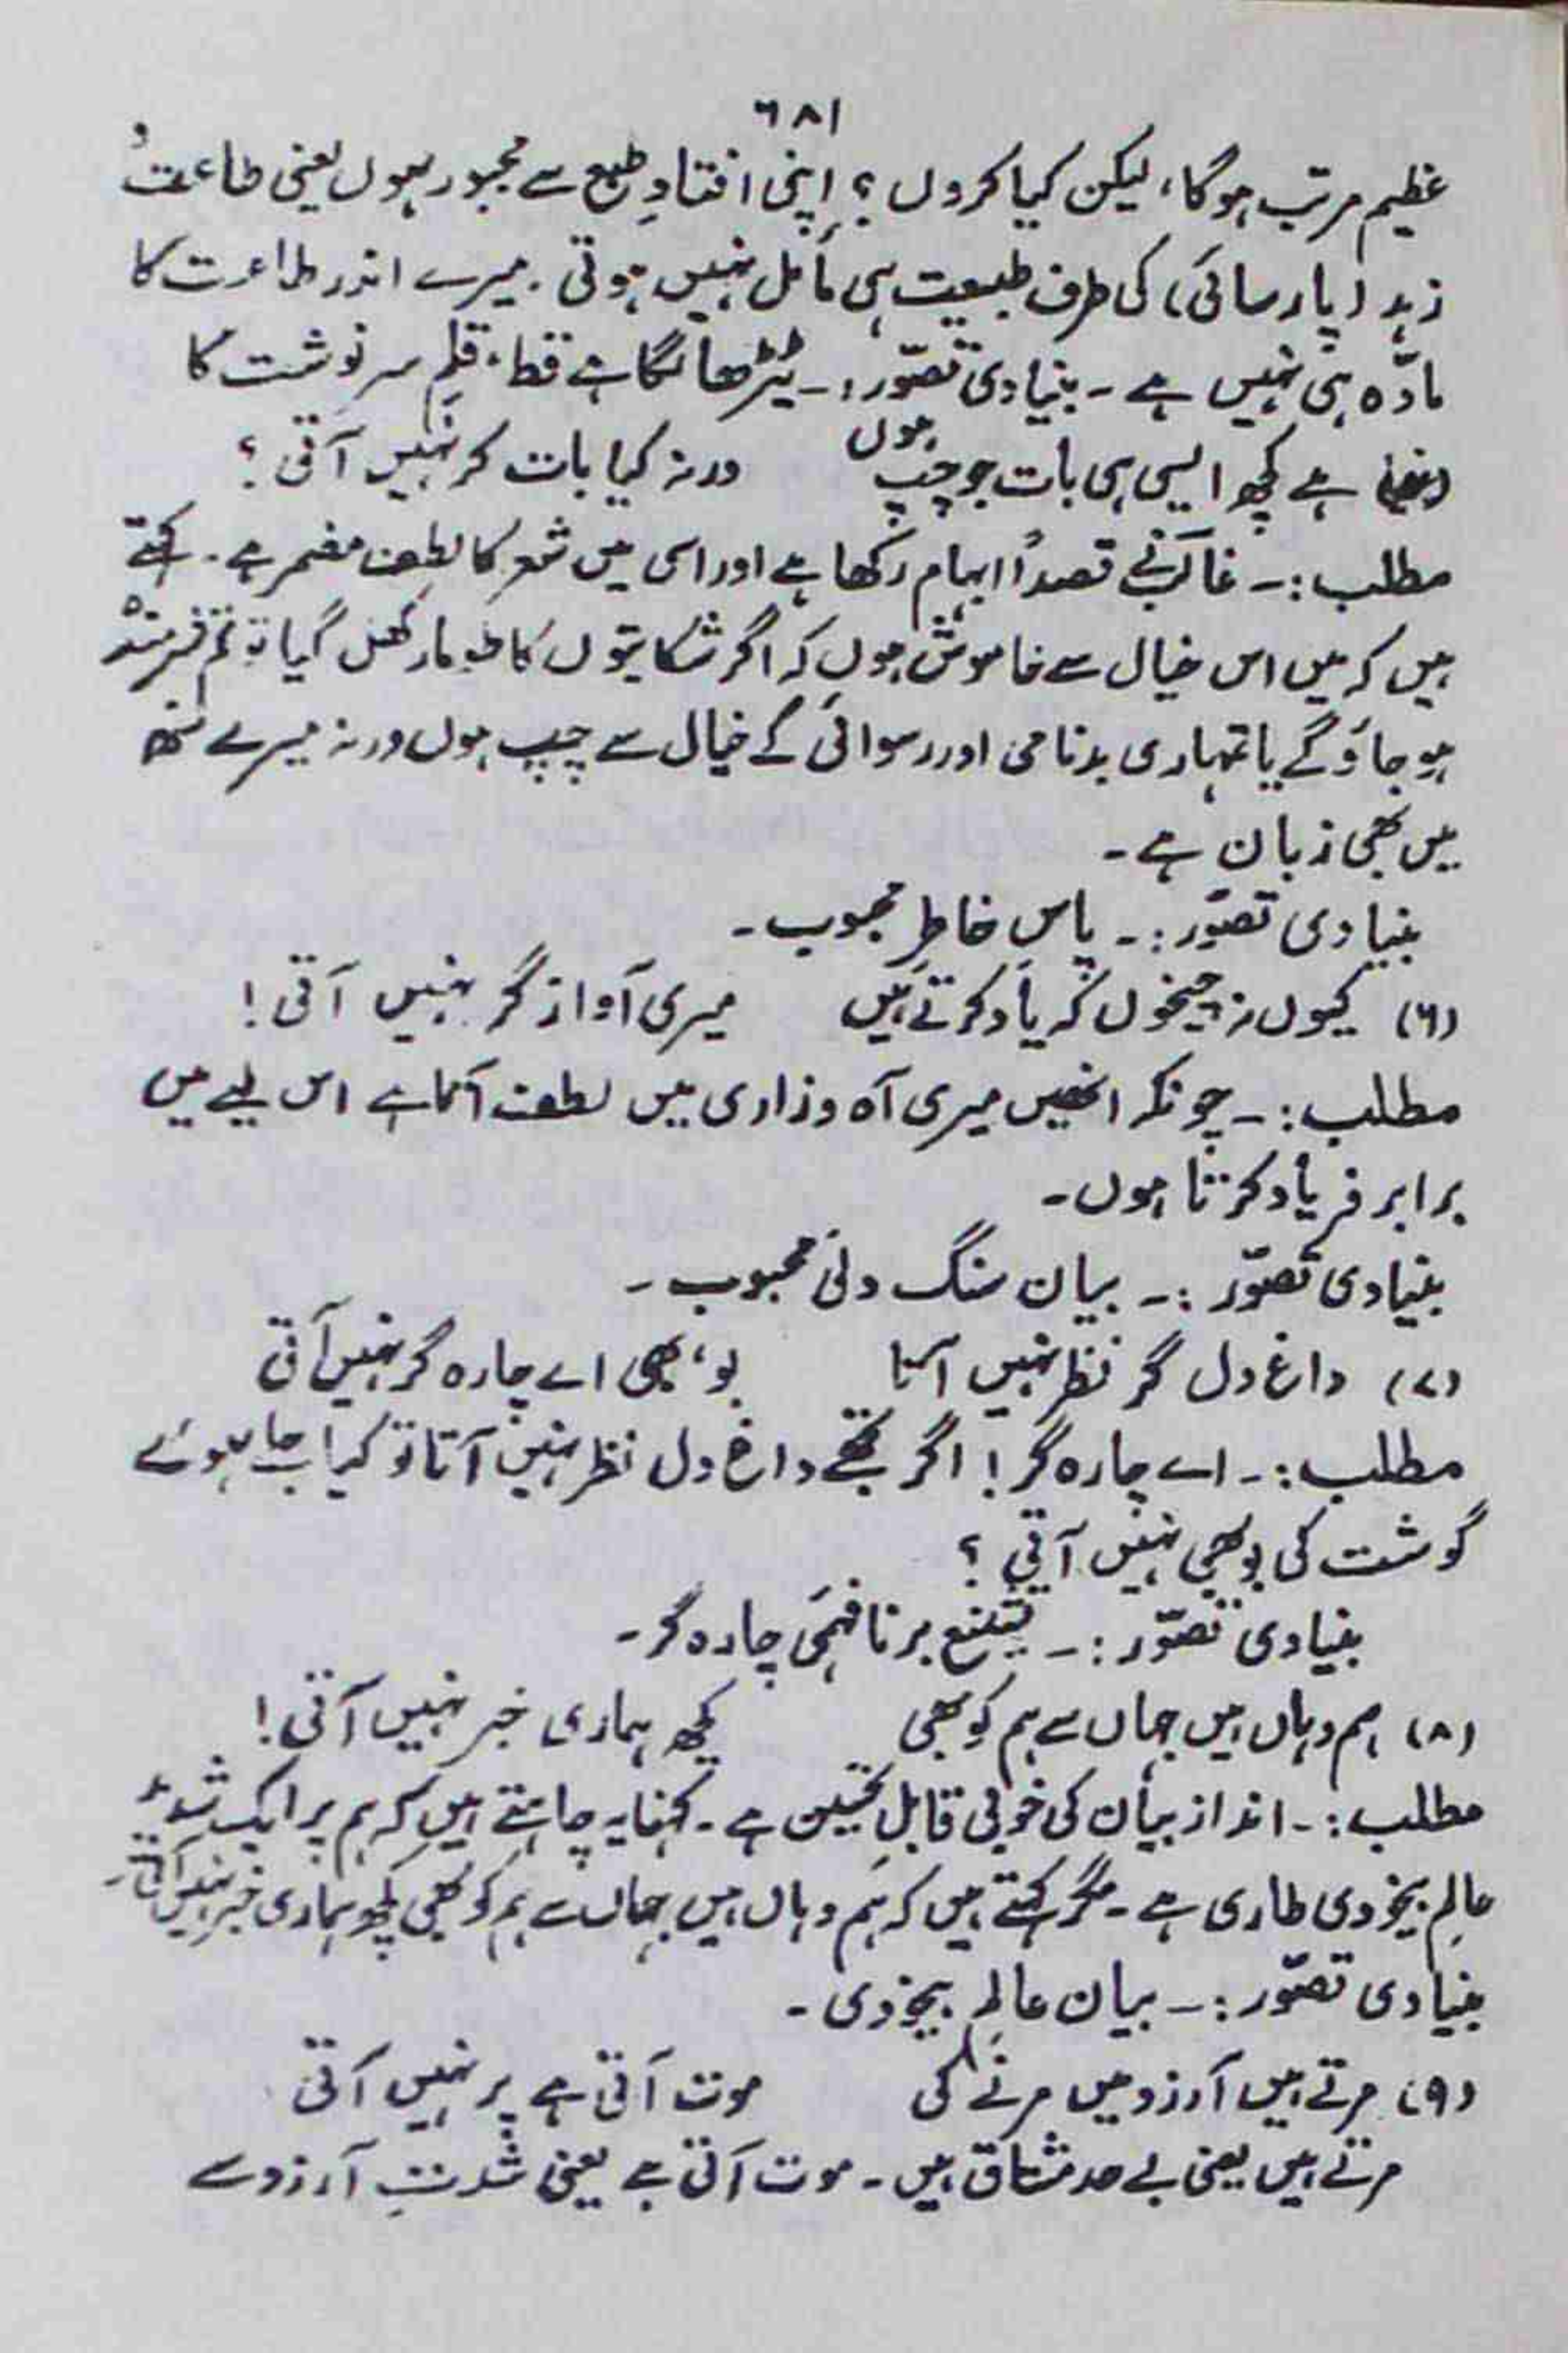 ۶۸۱
عظیم مرتب ہوگا، لیکن کیا کروں؟ اپنی افتادِ طبع سے مجبور ہوں یعنی طاعت و
زہد (پارسائی) کی طرف طبیعت ہی مائل نہیں ہوتی۔ میرے اندر طاعت کا
مادّہ ہی نہیں ہے۔ بنیادی تصوّر:۔ ٹیڑھا لگا ہے قط، قلمِ سرنوشت کا
ہے کچھ ایسی ہی بات جو چپ ہوں ورنہ کیا بات کر نہیں آتی؟
مطلب:۔ غالب نے قصداً ابہام رکھا ہے اور اسی میں شعر کا لطف مضمر ہے۔ کہتے
ہیں کہ میں اس خیال سے خاموش ہوں کہ اگر شکایتوں کا طومار کھل گیا تو تم شرمندہ
ہو جاؤ گے یا تمہاری بدنامی اور رسوائی کے خیال سے چپ ہوں ورنہ میرے منھ
میں بھی زبان ہے۔
بنیادی تصوّر:۔ پاسِ خاطرِ محبوب۔
(۶) کیوں نہ چیخوں کہ یاد کرتے ہیں میری آواز گر نہیں آتی!
مطلب:۔ چونکہ انھیں میری آہ و زاری میں لطف آتا ہے اس لیے میں
برابر فریاد کرتا ہوں۔
بنیادی تصوّر:۔ بیان سنگ دلیٔ محبوب۔
(۷) داغِ دل گر نظر نہیں آتا بو، بھی اے چارہ گر نہیں آتی
مطلب:۔ اے چارہ گر! اگر تجھے داغِ دل نظر نہیں آتا تو کیا جلے ہوئے
گوشت کی بو بھی نہیں آتی؟
بنیادی تصوّر:۔ تشنیع بر نافہمیٔ چارہ گر۔
(۸) ہم وہاں ہیں جہاں سے ہم کو بھی کچھ ہماری خبر نہیں آتی!
مطلب:۔ انداز بیان کی خوبی قابلِ تحسین ہے۔ کہنا یہ چاہتے ہیں کہ ہم پر ایک شدید
عالمِ بیخودی طاری ہے۔ مگر کہتے ہیں کہ ہم وہاں ہیں جہاں سے ہم کو بھی کچھ ہماری خبر نہیں آتی۔
بنیادی تصوّر:۔ بیان عالمِ بیخودی۔
(۹) مرتے ہیں آرزو میں مرنے کی موت آتی ہے پر نہیں آتی
مرتے ہیں یعنی بے حد مشتاق ہیں۔ موت آتی ہے یعنی شدتِ آرزو سے